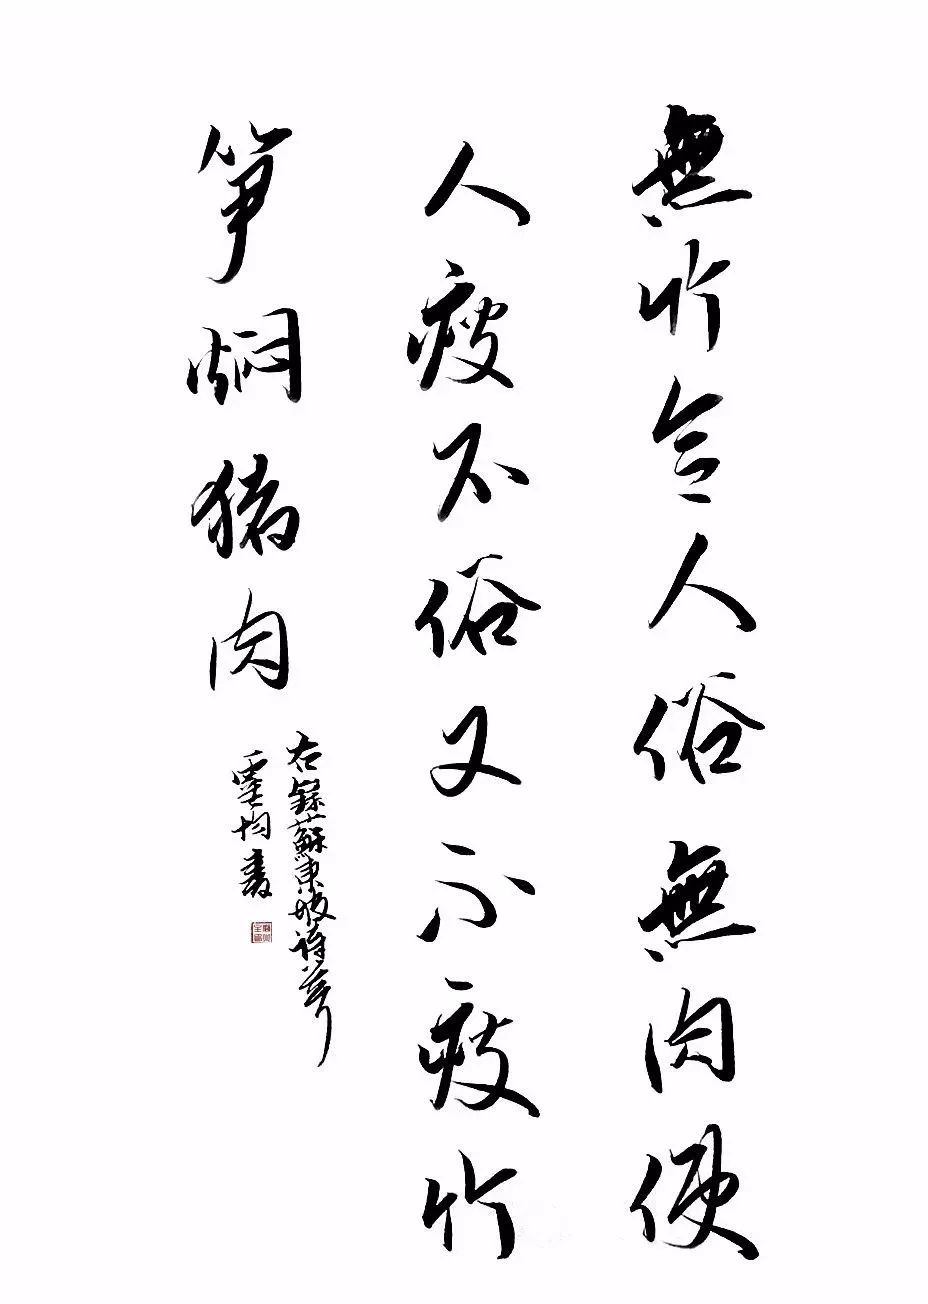 無竹令人俗無肉使
人瘦不俗又不瘦竹
笋焖猪肉
右錄蘇東坡詩
均書